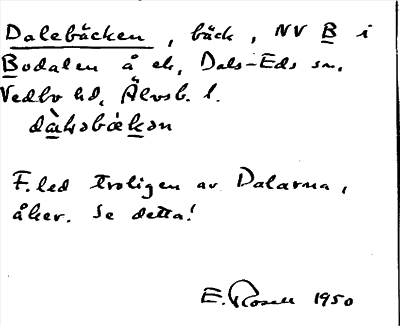 Dalebäcken, bäck, NV B i
Bodalen å ek, Dals-Eds sn.
Vedbo hd, Älvsb. l.
dàləbækən
F.led troligen av Dalarna,
åker. Se detta!
E. Rosell 1950